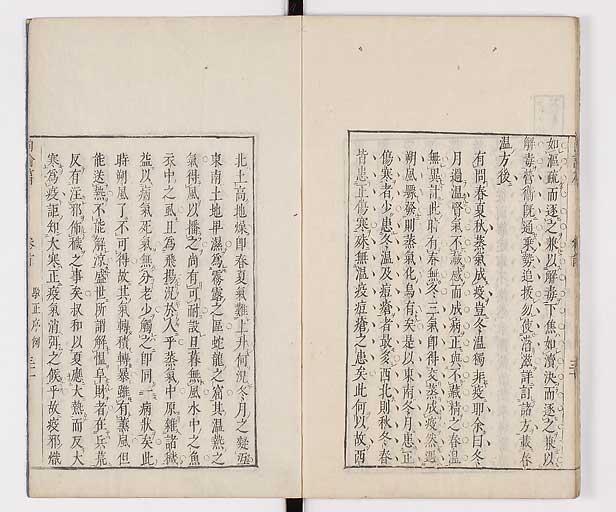 如漚疏而逐之兼以解毒下焦如瀆決而逐之兼以
解毒營衛既通乘勢追拔勿使潛滋詳訂諸方載春
溫方後
有問春夏秋蒸氣成疫豈冬溫獨非疫耶余曰冬
月過溫腎氣不藏感而成病正與不藏精之春溫
無異計此時有春無冬三氣即得交蒸成疫然遇
朔風驟發則蒸氣化烏有矣是以東南冬月患正
傷寒者少患冬溫及痘瘡者最多西北則秋冬春
皆患正傷寒殊無瘟疫痘瘡之患矣此何以故西
北土高地燥即春夏氣難上升何況冬月之凝沍
東南土地卑濕為霧露之區蛇龍之窟其溫熱之
氣得風以播之尚有可耐設旦暮無風水中之魚
衣中之虱且為飛揚況於人乎蒸氣中原雜諸穢
益以病氣死氣無分老少觸之即同一病狀矣此
時朔風了不可得故其氣轉積轉暴雖有薰風但
能送熱不能解凉盛世所謂解慍阜財者在兵荒
反有注邪佈穢之事矣叔和以夏應大熱而反大
寒為疫詎知大寒正疫氣消弭之候乎故疫邪熾
卷首 駁正序例